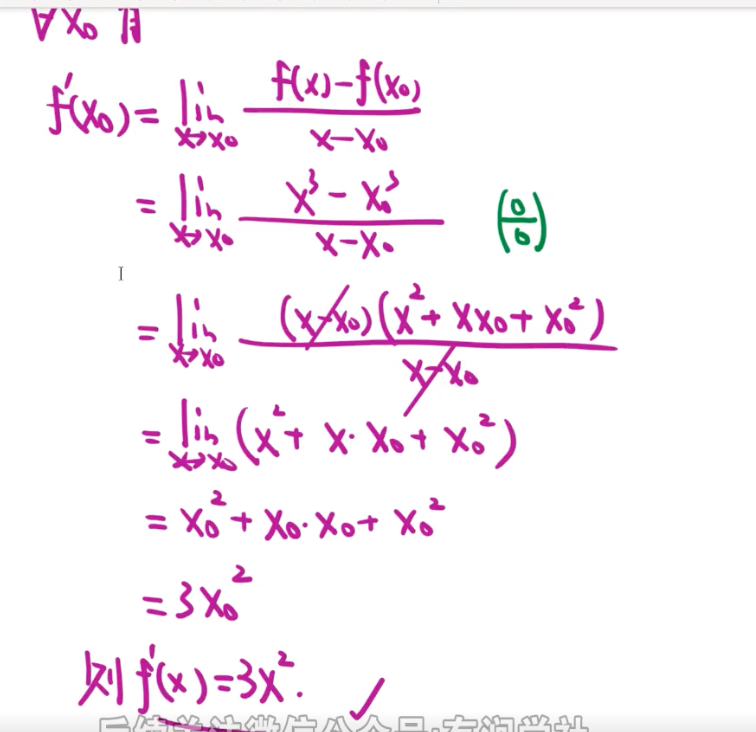 ∀x₀ 有
f'(x₀) = lim_{x→x₀} (f(x)-f(x₀))/(x-x₀)
= lim_{x→x₀} (x³-x₀³)/(x-x₀) (0/0)
= lim_{x→x₀} (x-x₀)(x²+xx₀+x₀²)/(x-x₀)
= lim_{x→x₀} (x²+x·x₀+x₀²)
= x₀²+x₀·x₀+x₀²
= 3x₀²
则 f'(x)=3x². ✓